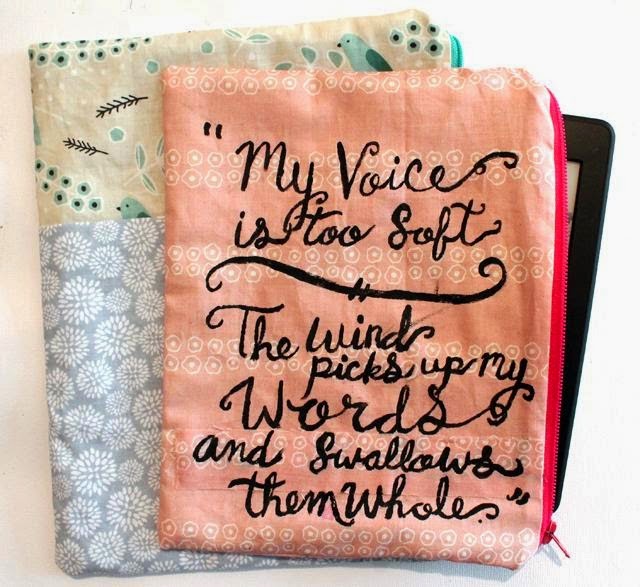 "My Voice
is too Soft
"
The wind
picks up my
Words
and Swallows
them Whole."